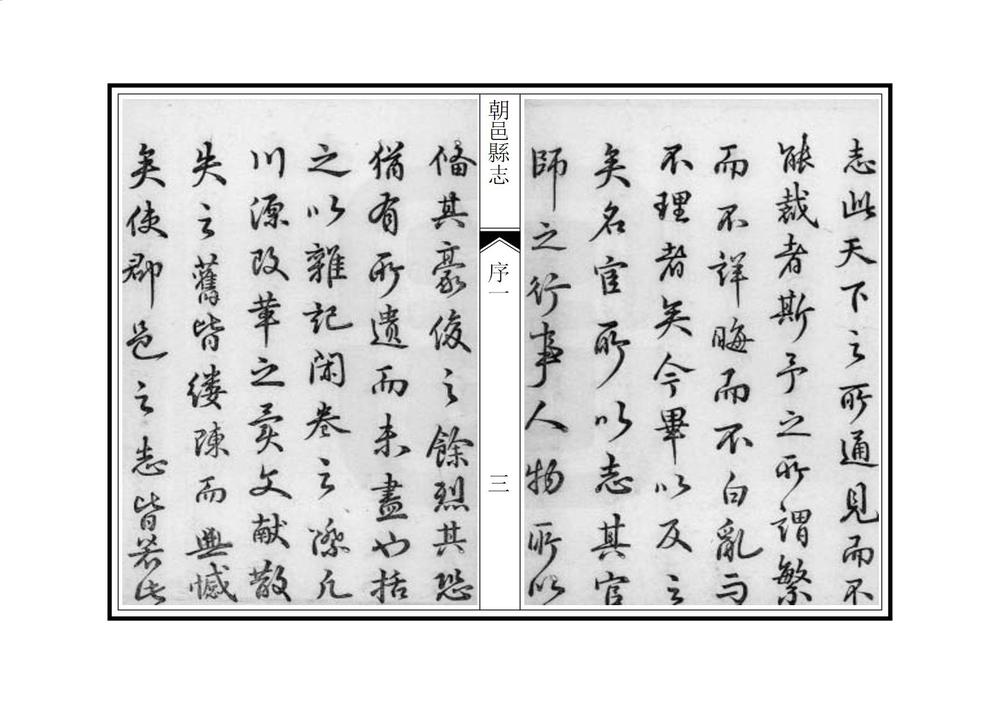 志此天下之所通見而不
能裁者斯予之所謂繁
而不詳晦而不白亂而
不理者矣今畢以反之
矣名宦所以志其官
師之行事人物所以
朝邑縣志
序一
三
備其豪俊之餘烈其恐
猶有所遺而未盡也括
之以雜記閑卷之際凡
川源改革之異文献散
失之舊皆縷陳而興憾
矣使郡邑之志皆若此